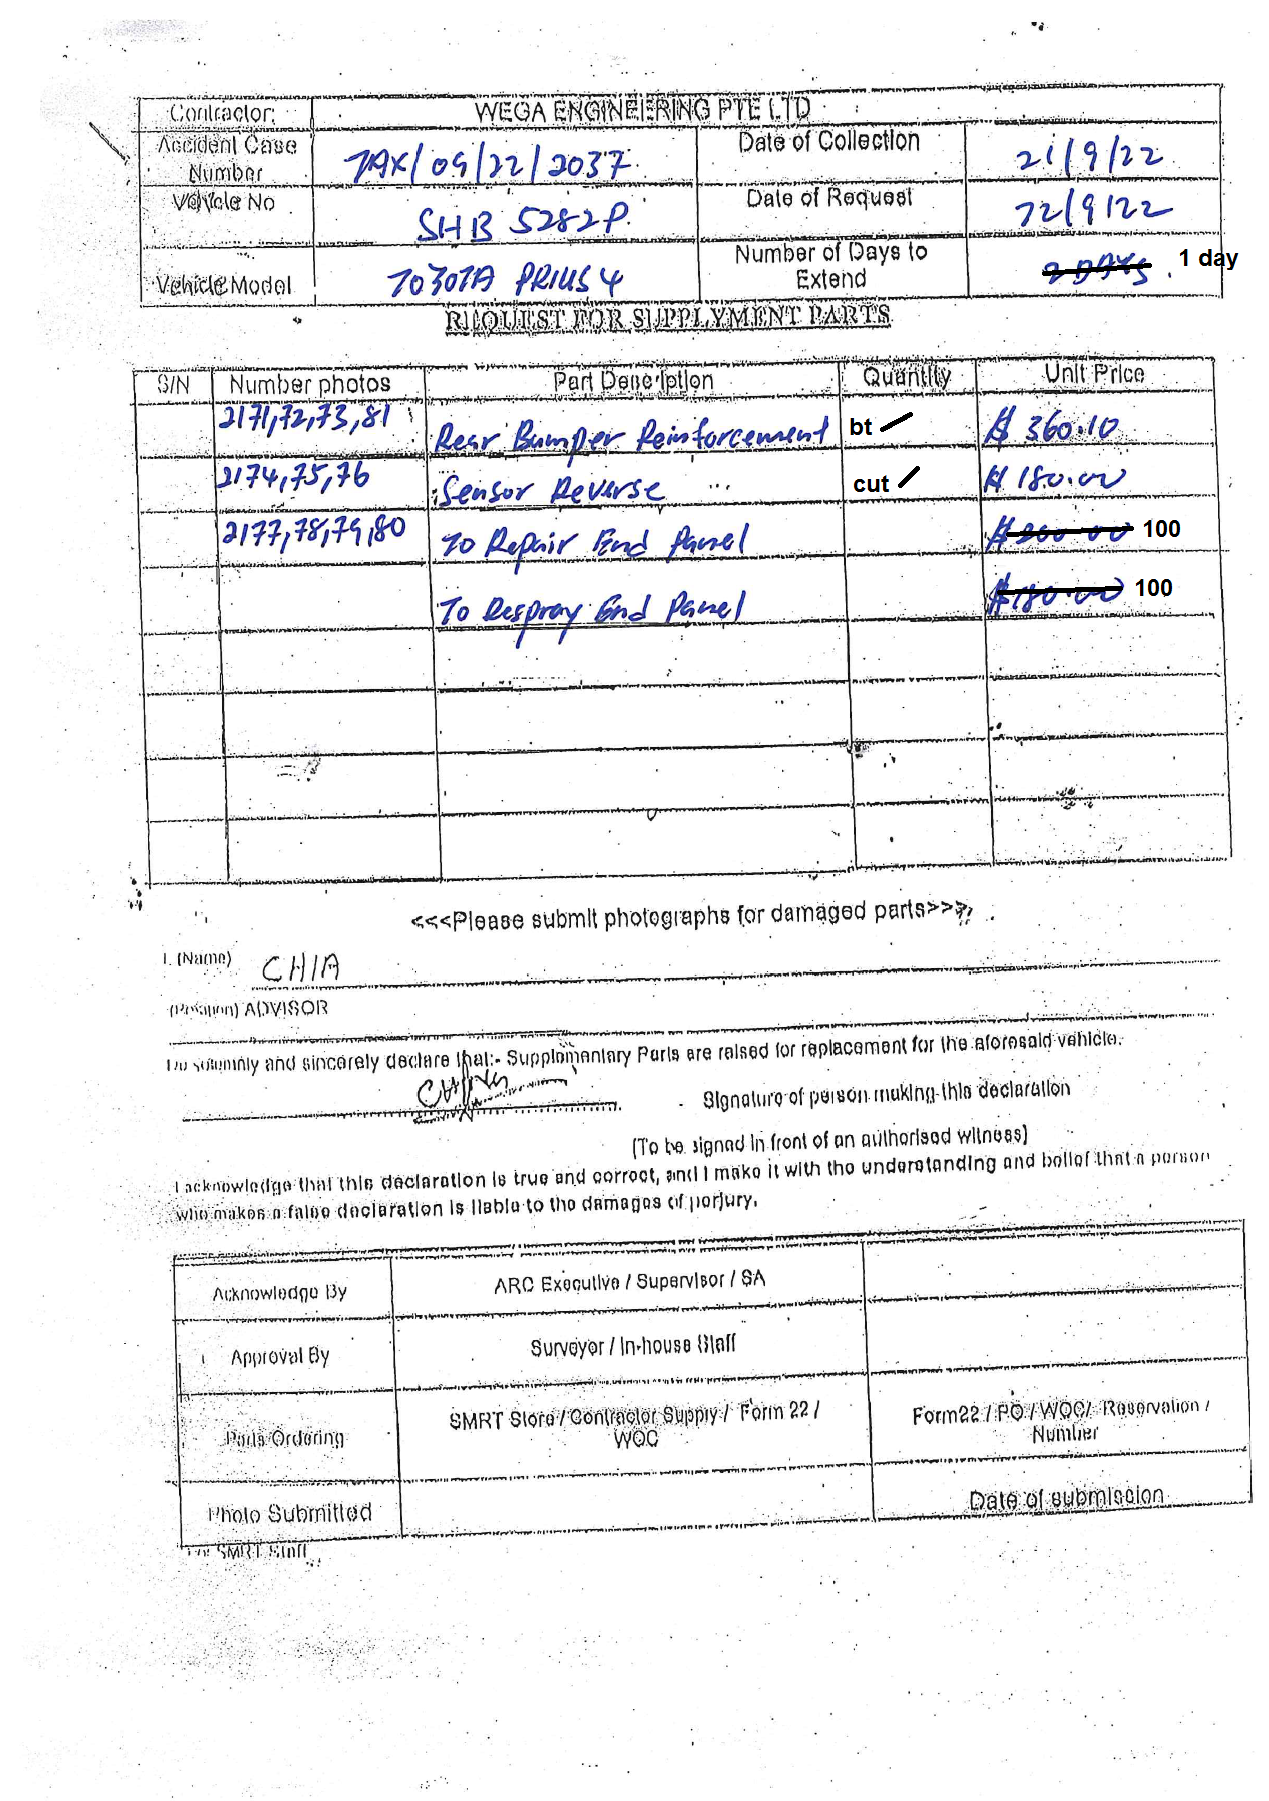 Contractor: WEGA ENGINEERING PTE LTD
Accident Case Number TAX/09/22/2037 Date of Collection 21/9/22
Vehicle No SHB 5282P. Date of Request 22/9/22
Vehicle Model TOYOTA PRIUS 4 Number of Days to Extend 2 DAYS. 1 day
REQUEST FOR SUPPLYMENT PARTS
S/N Number photos Part Description Quantity Unit Price
2171,72,73,81 Rear Bumper Reinforcement bt $ 360.10
2174,75,76 Sensor Reverse cut $ 180.00
2177,78,79,80 To Repair End Panel $ 200.00 100
To Respray End Panel $ 180.00 100
<<<Please submit photographs for damaged parts>>>
I. (Name) CHIA
(Position) ADVISOR
Do solemnly and sincerely declare that:- Supplementary Parts are raised for replacement for the aforesaid vehicle.
Signature of person making this declaration
(To be signed in front of an authorised witness)
I acknowledge that this declaration is true and correct, and I make it with the understanding and belief that a person
who makes a false declaration is liable to the damages of perjury.
Acknowledge By ARC Executive / Supervisor / SA
Approval By Surveyor / In-house Staff
Parts Ordering SMRT Store / Contractor Supply / Form 22 / WOC Form22 / PO / WOC / Reservation / Number
Photo Submitted Date of submission
For SMRT Staff